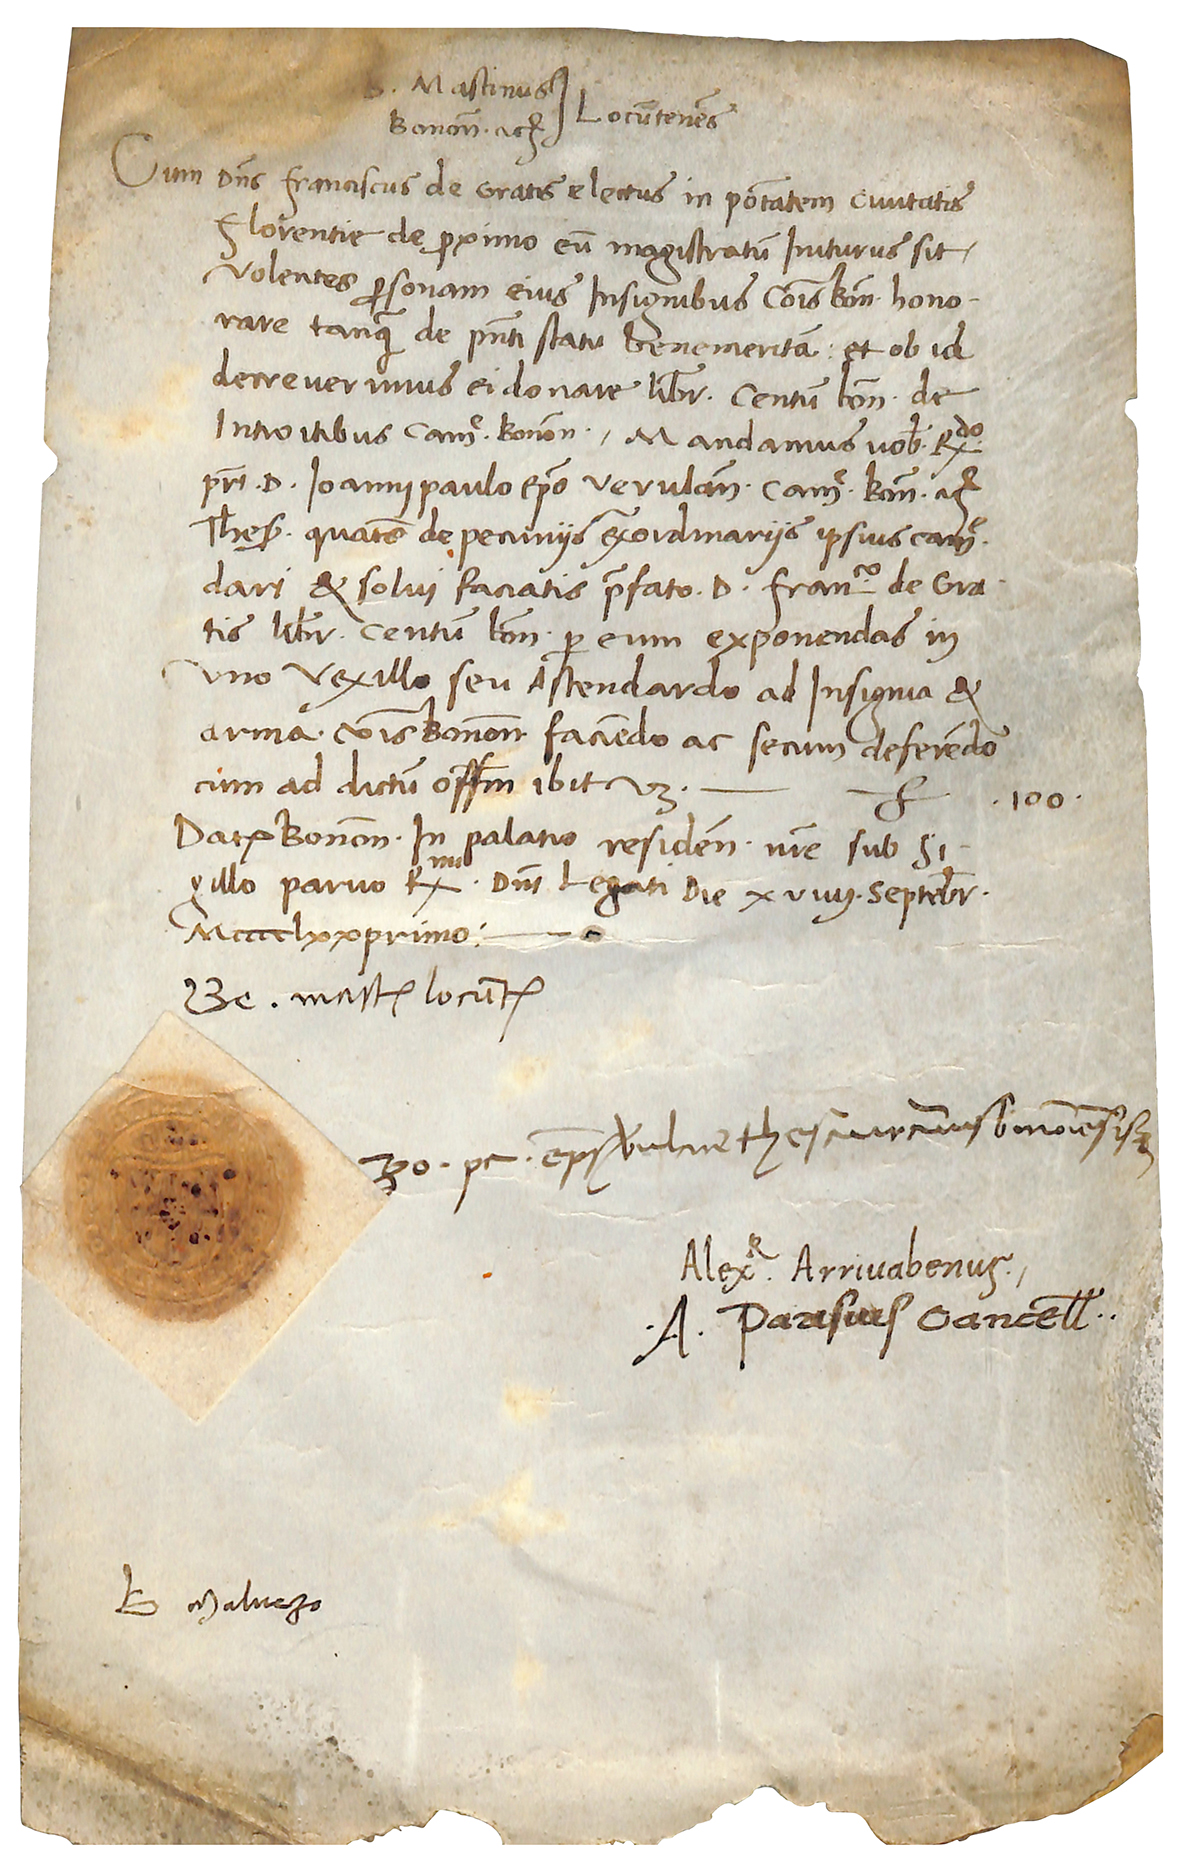 B. Mastinus
Bonon̄. ac͛
Locūtenēs
Cum Dn̄s franciscus de Gratis electus in pōtatem Civitatis
Florentie de ꝓximo eū magistratū Initurus sit /
Volentes ꝑsonam eius Insignibus Cōis bōn. hono-
rare tanq̄ de pn̄ti statu benemeritā: et ob id
decreverimus ei donare libr. Centū bōn. de
Introitibus Cam̄. bonon. / Mandamus vob̄. Rdo.
pr̄i. D. Joannj paulo Ep̄o Verulān. Cam̄. bōn. ac͛
Thes. quatē de pecunijs Ex̄ordinarijs ipsius cam̄.
dari & solvi faciatis p̄fato. D. franco. de Gra-
tis libr. Centū bōn. ꝑ eum exponendas in
uno Vexillo seu Astendardo ad Insignia &
arma. cōis bonon̄. faciēdo ac secum deferēdo
cum ad dictū offm̄ ibit vꝫ. — £ .100.
Dat. Bonon̄. In palatio residēn. nr̄e sub Si-
gillo parvo Rmi. Dn̄i Legati Die xviiij. Septēbr.
Mcccclxxprimo:
Be. mast. locūt.
Jo. pa. ep̄s
Alexr. Arrivabenus. /
.A. Parisius Cancell̄..
B Malvezo